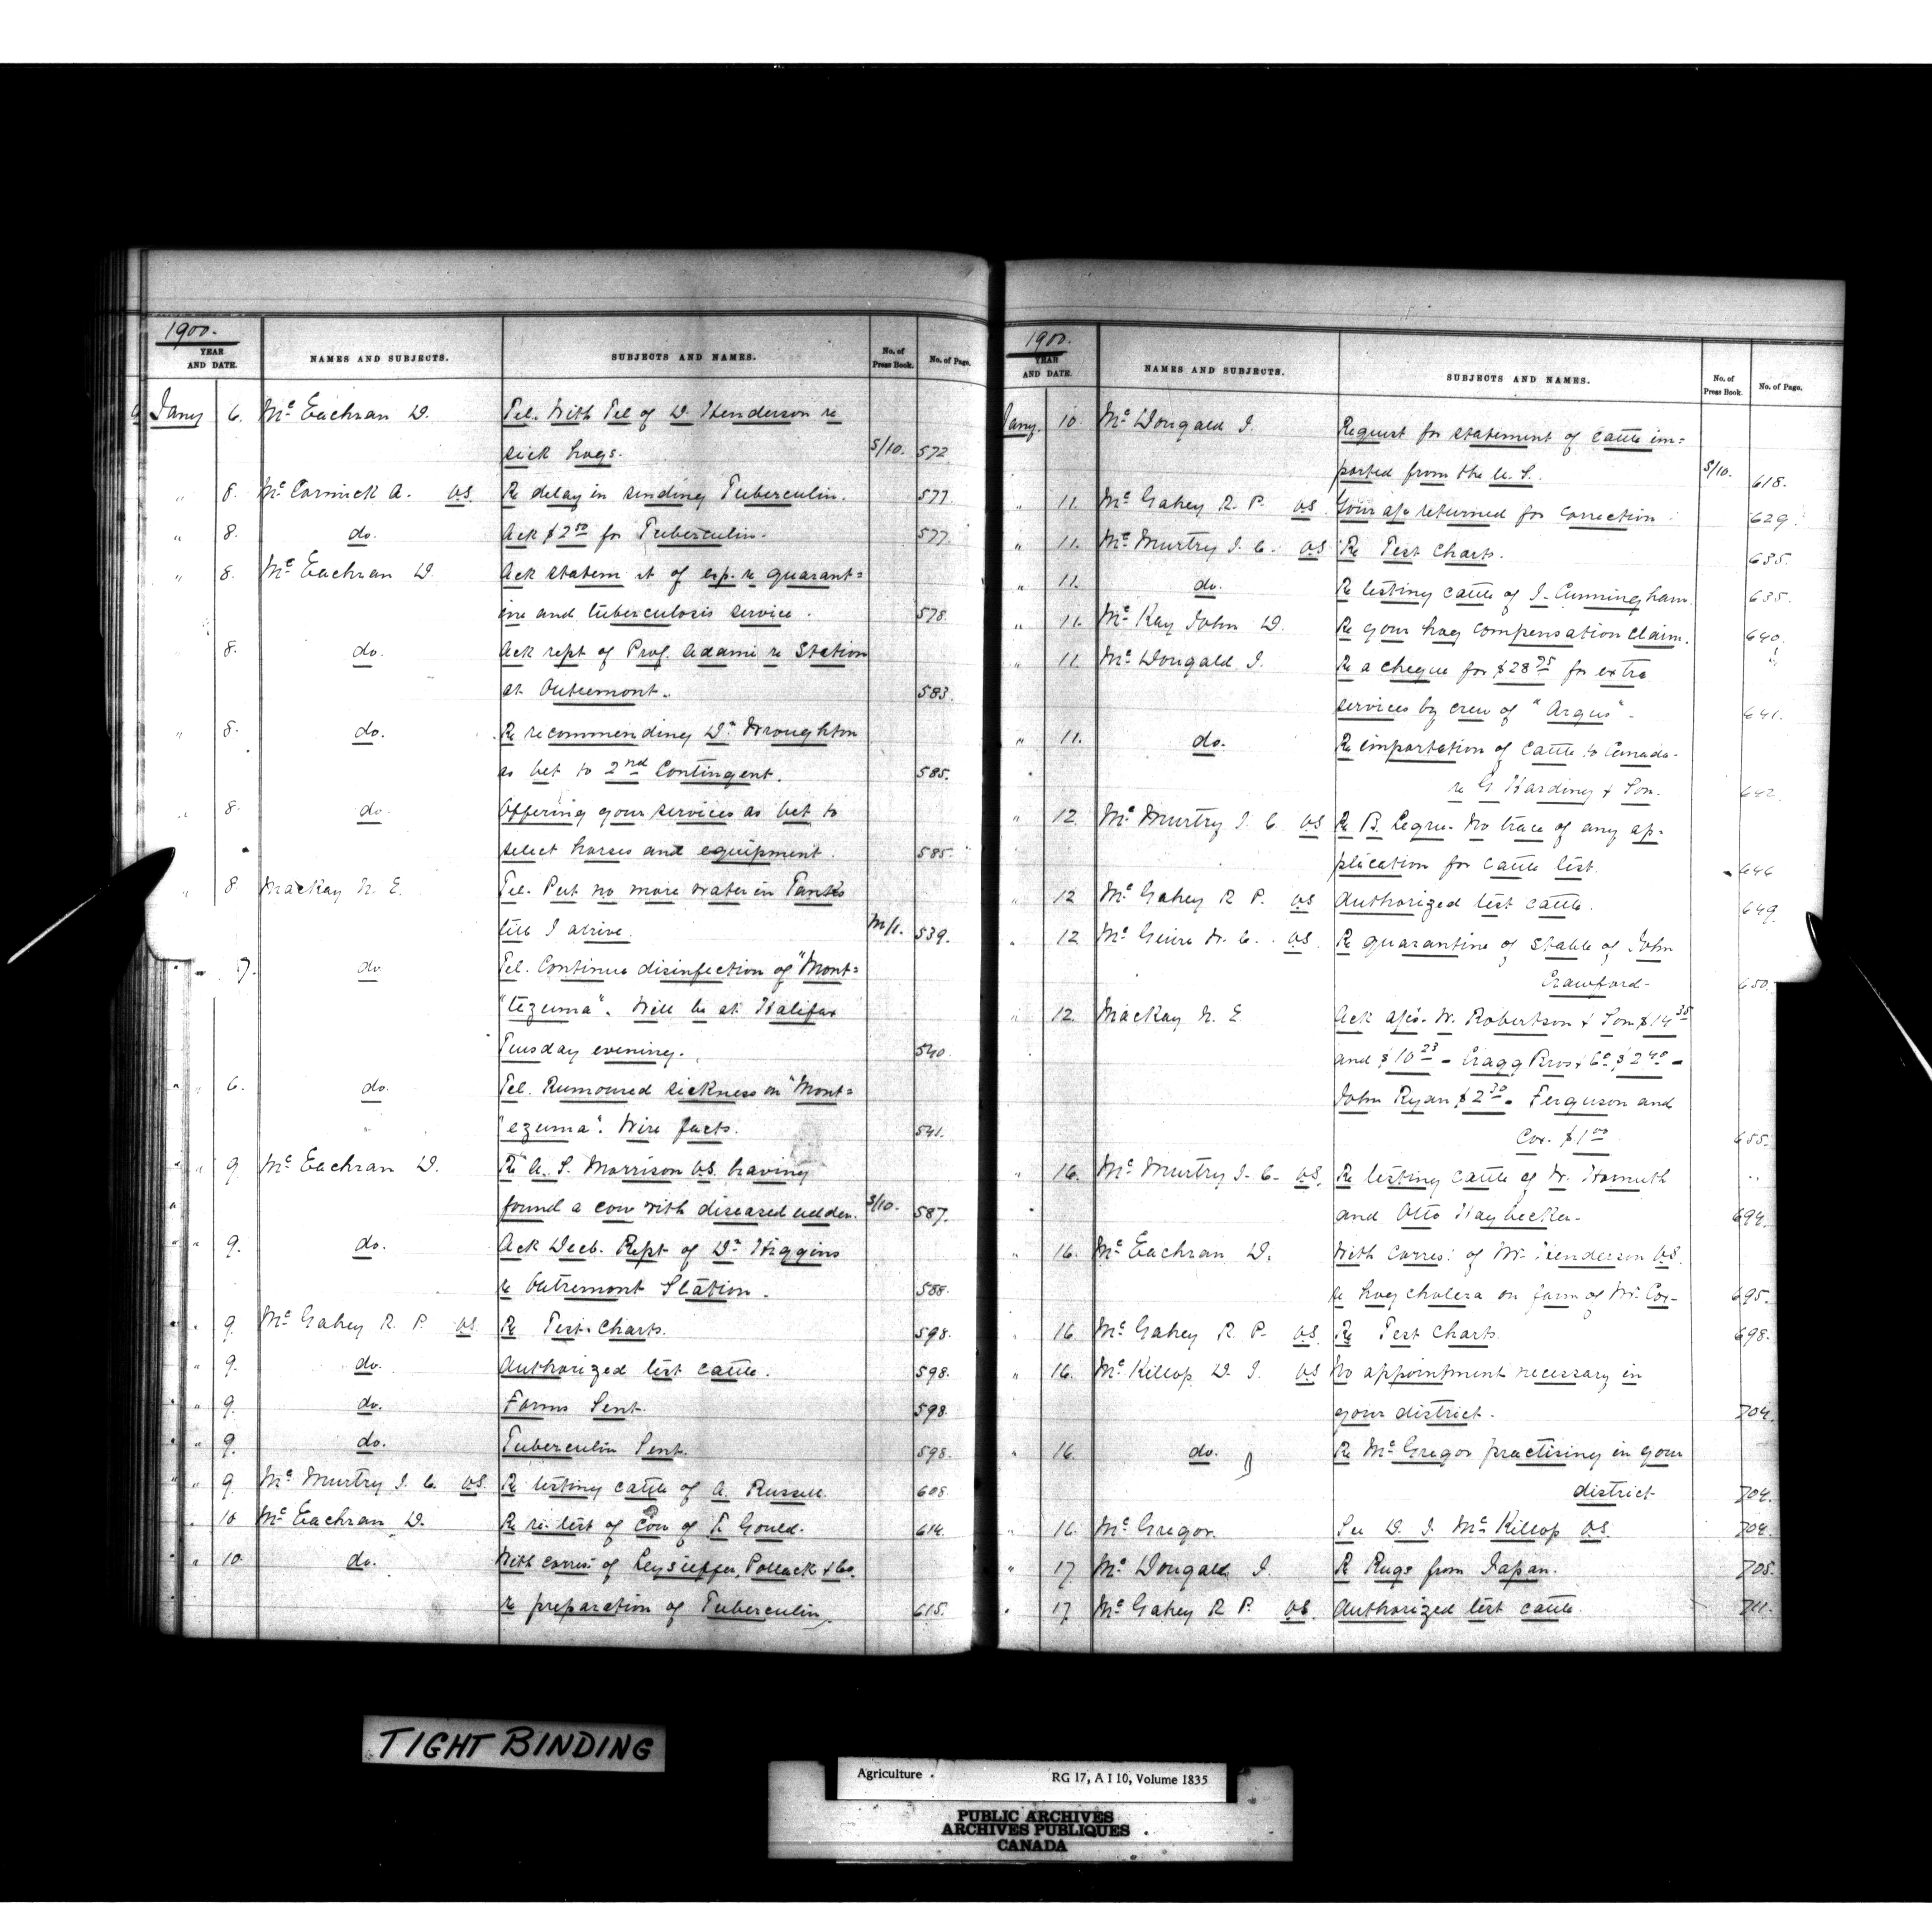 1900.
YEAR AND DATE. NAMES AND SUBJECTS. SUBJECTS AND NAMES. No. of Press Book. No. of Page.
Jany 6. Mc Eachran D. Tel. With Tel of D. Henderson re
sick hogs. S/10. 572
" 8. Mc Cormick A. V.S. Re delay in sending Tuberculin. 577.
" 8. do. Ack $2 50 for Tuberculin. 577.
" 8. Mc Eachran D. Ack statem nt of exp. re quarant=
ine and tuberculosis service. 578.
8. do. Ack rept of Prof. Adami re Station
at Outremont. 583.
" 8. do. Re recommending Dr Wroughton
as vet to 2nd Contingent. 585.
" 8. do. Offering your services as vet to
select horses and equipment. 585.
" 8. Mackay N. E. Tel. Put no more water in Tanks
till I arrive. M/1. 539.
" 7. do Tel. Continue disinfection of "Mont=
"tezuma". Will be at Halifax
Tuesday evening. 540
" 6. do. Tel. Rumoured sickness on "Mont=
"ezuma". Wire facts. 541.
" 9. Mc Eachran D. Re A. S. Morrison V.S. having
found a cow with diseased udder. S/10. 587.
" 9. do. Ack Decb. Rept of Dr Higgins
re Outremont Station. 588.
" 9. Mc Gahey R. P. V.S. Re Test Charts. 598.
" 9. do. Authorized test cattle. 598.
" 9. do. Forms Sent. 598.
" 9. do. Tuberculin Sent. 598.
" 9. Mc Murtry J. C. V.S. Re testing cattle of A. Russell. 608.
" 10 Mc Eachran D. Re re-test of Cow of T. Gould. 614.
" 10. do. With corres: of Leyseiffer, Pollack & Co.
re preparation of Tuberculin. 615.
1900.
YEAR AND DATE. NAMES AND SUBJECTS. SUBJECTS AND NAMES. No. of Press Book. No. of Page.
Jany. 10. Mc Dougald J. Request for statement of cattle im=
ported from the U.S. S/10. 618.
" 11. Mc Gahey R. P. V.S. Your a/c returned for correction. 629.
" 11. Mc Murtry J. C. V.S. Re Test Charts. 635.
" 11. do. Re testing cattle of J. Cunningham. 635.
" 11. Mc Kay John D. Re your hog compensation claim. 640.
" 11. Mc Dougald J. Re a cheque for $28 75 for extra
services by crew of "Argus". 641.
" 11. do. Re importation of cattle to Canada-
re G Harding & Son. 642.
" 12. Mc Murtry J. C. V.S Re B. No trace of any ap-
plication for cattle test. 646
" 12 Mc Gahey R P. V.S Authorized test cattle. 649.
" 12 Mc Guire W. C. V.S. Re quarantine of stable of John
Crawford- 650.
" 12. Mackay N. E. Ack a/cs. W. Robertson & Son $14 35
and $10 23 - Cragg Bros. & Co $2 40 -
John Ryan $2 30. Ferguson and
Cox. $1 00 655.
" 16. Mc Murtry J. C. V.S. Re testing cattle of W. Hamuth
and Otto Haybecker- 694.
" 16. Mc Eachran D. With Corres: of Wm Henderson V.S.
re hog cholera on farm of Mr. Cox- 695.
16. Mc Gahey R. P. V.S. Re Test Charts. 698.
" 16. Mc Killop D. J. V.S No appointment necessary in
your district. 704.
" 16 do. Re McGregor practising in your
district 704.
" 16 Mc Gregor. See D. J. McKillop V.S. 704.
" 17 Mc Dougald J. Re Rugs from Japan. 705.
" 17. Mc Gahey R P. V.S. Authorized test cattle. 711.
TIGHT BINDING
Agriculture . RG 17, A I 10, Volume 1835
PUBLIC ARCHIVES
ARCHIVES PUBLIQUES
CANADA